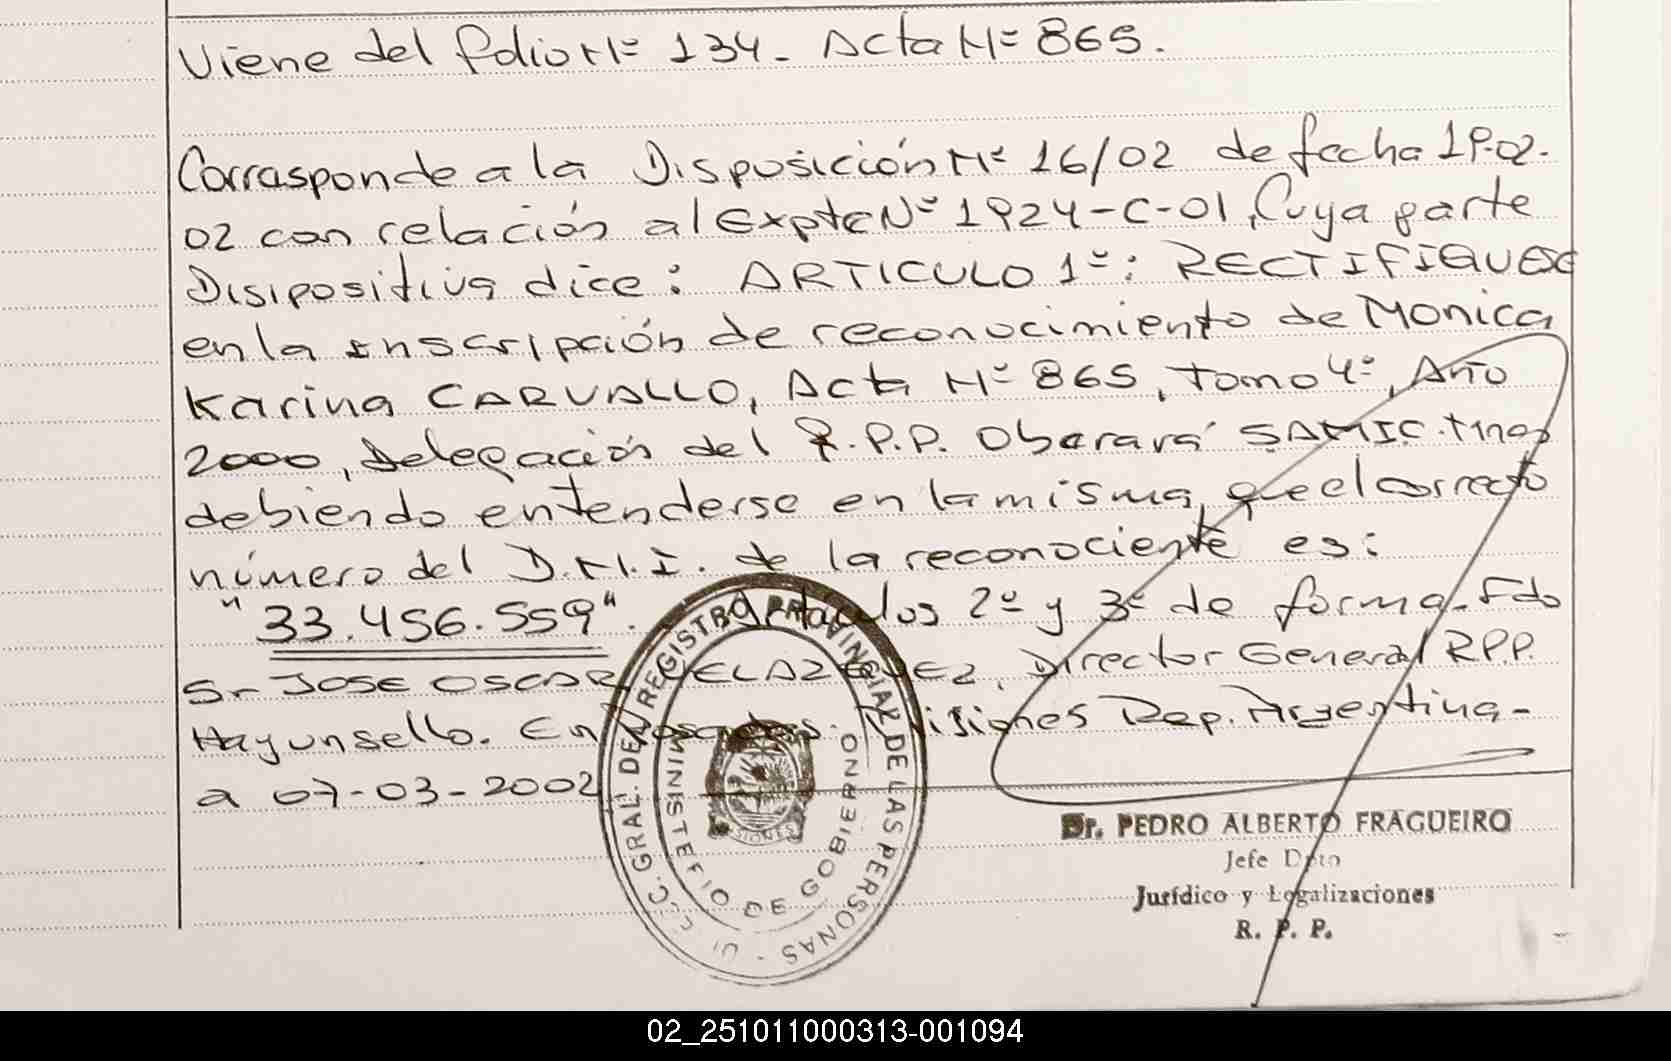 Viene del folio Nº 134. Acta Nº 865.
Corresponde a la Disposición Nº 16/02 de fecha 19-02-
02 con relación al Expte Nº 1924-C-01, Cuya parte
Disipositiva dice: ARTICULO 1º: RECTIFIQUESE
en la inscripción de reconocimiento de Monica
Karina CARVALLO, Acta Nº 865, Tomo 4º, Año
2000, Delegación del R.P.P. Oberará SAMIC.
debiendo entenderse en la misma, que el correcto
número del D.N.I. de la reconociente es:
"33.456.559". Artículos 2º y 3º de forma. Fdo
Sr JOSE OSCAR VELAZQUEZ, Director General R.P.P.
Hay un sello. En Posadas. Misiones Rep. Argentina-
a 07-03-2002
C. GRAL. DEL REGISTRO PROVINCIAL DE LAS PERSONAS
MINISTERIO DE GOBIERNO
MISIONES
Dr. PEDRO ALBERTO FRAGUEIRO
Jefe Dpto
Jurídico y Legalizaciones
R. P. P.
02_251011000313-001094